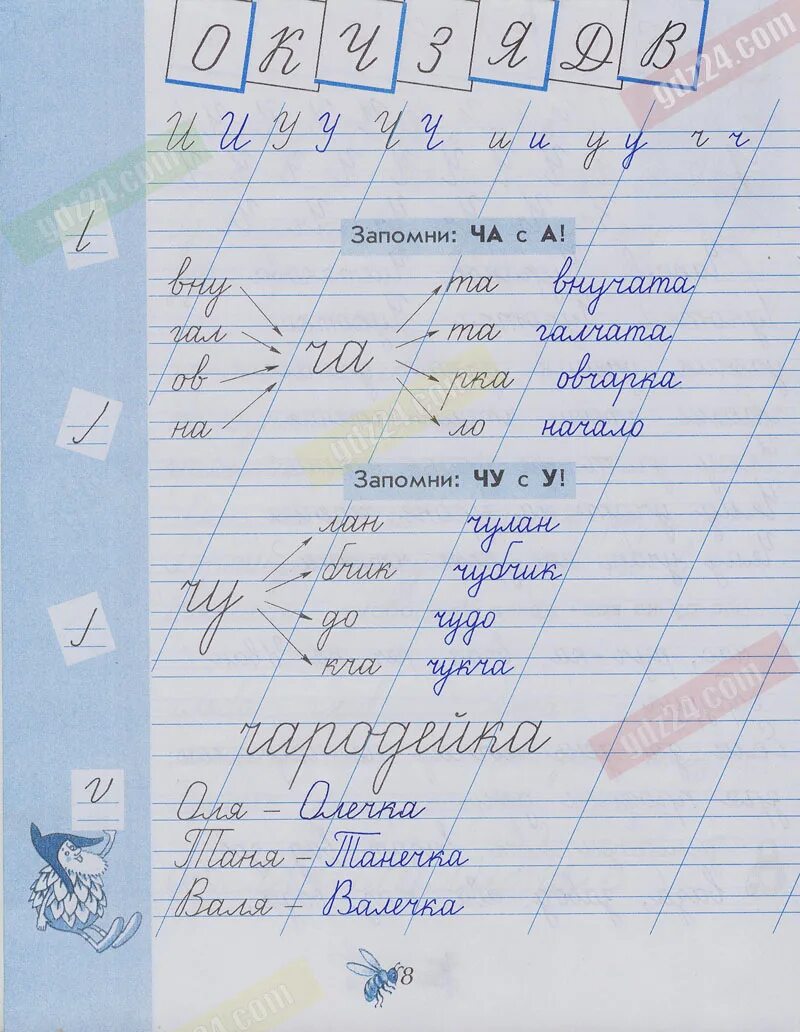 О К Ч З Я Д В
И И У У Ч Ч и и у у ч ч
Запомни: ЧА с А!
вну та внучата
гал ча та галчата
ов рка овчарка
на ло начало
Запомни: ЧУ с У!
лан чулан
чу бчик чубчик
до чудо
кча чукча
чародейка
Оля – Олечка
Таня – Танечка
Валя – Валечка
8
gdz24.com
gdz24.com
gdz24.com
gdz24.com
gdz24.com